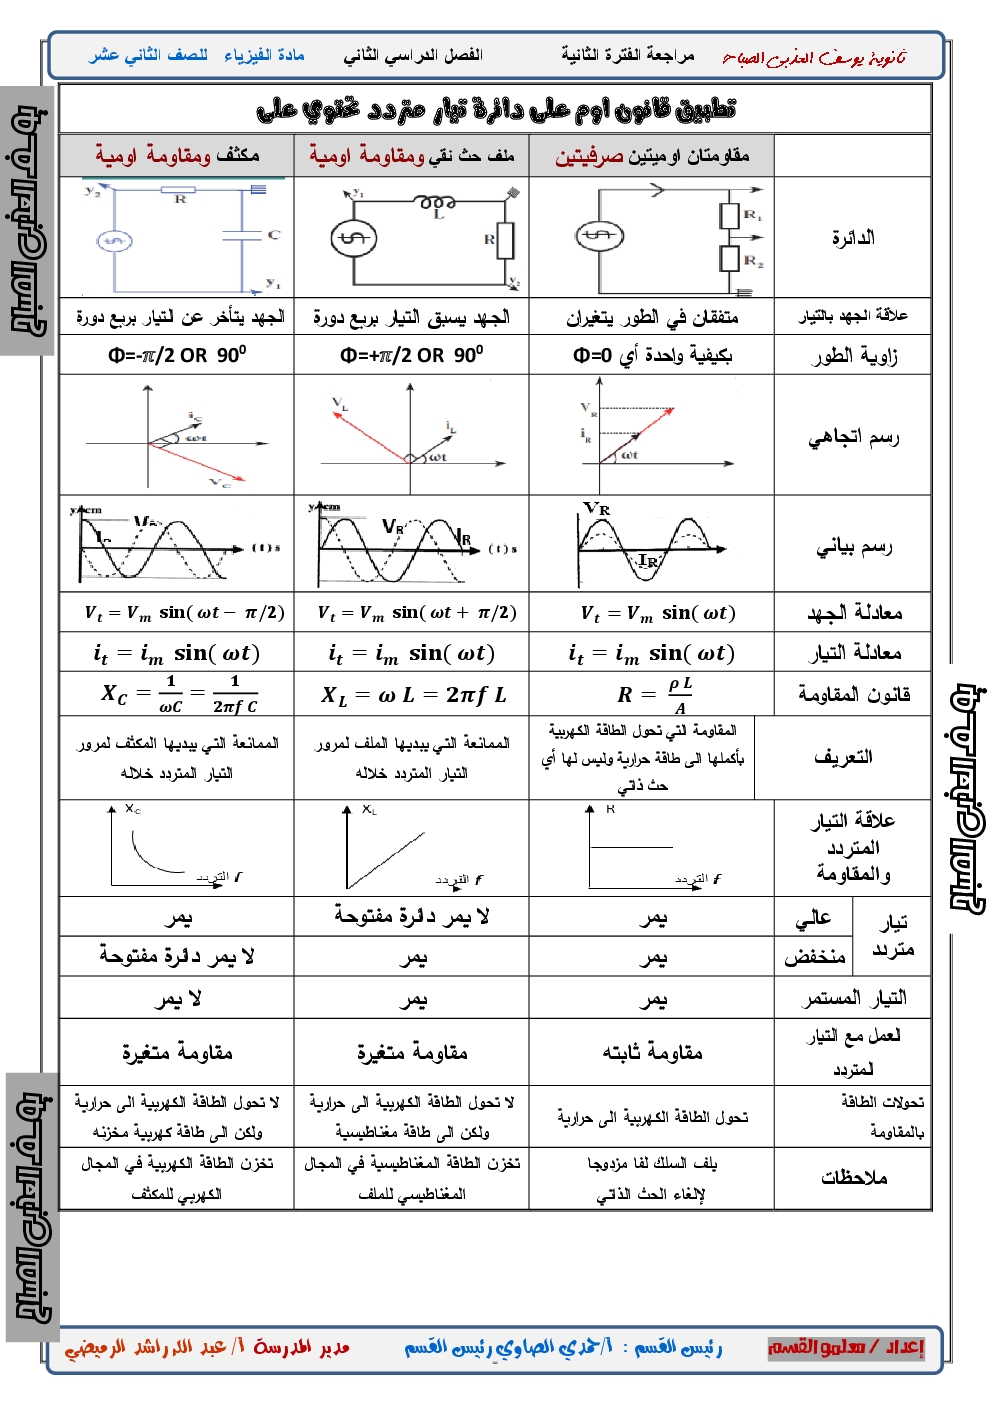 ثانوية يوسف العذبي الصباح مراجعة الفترة الثانية الفصل الدراسي الثاني مادة الفيزياء للصف الثاني عشر
تطبيق قانون اوم على دائرة تيار متردد تحتوي على
مقاومتان اوميتين صرفيتين
ملف حث نقي ومقاومة اومية
مكثف ومقاومة اومية
الدائرة
R₁
R₂
y₁
L
R
y₂
y₂
R
C
y₁
علاقة الجهد بالتيار
متفقان في الطور يتغيران
الجهد يسبق التيار بربع دورة
الجهد يتأخر عن التيار بربع دورة
زاوية الطور
بكيفية واحدة أي Φ=0
Φ=+π/2 OR 90⁰
Φ=-π/2 OR 90⁰
رسم اتجاهي
V_R
i_R
ωt
V_L
i_L
ωt
i_C
ωt
V_C
رسم بياني
V_R
I_R
y cm
V_R
I_R
( t ) s
y cm
( t ) s
معادلة الجهد
V_t = V_m sin( ωt)
V_t = V_m sin( ωt + π/2)
V_t = V_m sin( ωt − π/2)
معادلة التيار
i_t = i_m sin( ωt)
i_t = i_m sin( ωt)
i_t = i_m sin( ωt)
قانون المقاومة
R = ρ L / A
X_L = ω L = 2πf L
X_C = 1/ωC = 1/2πf C
التعريف
المقاومة التي تحول الطاقة الكهربية
بأكملها الى طاقة حرارية وليس لها أي
حث ذاتي
الممانعة التي يبديها الملف لمرور
التيار المتردد خلاله
الممانعة التي يبديها المكثف لمرور
التيار المتردد خلاله
علاقة التيار
المتردد
والمقاومة
R
التردد f
X_L
التردد f
X_C
التردد f
تيار
متردد
عالي
يمر
لا يمر دائرة مفتوحة
يمر
منخفض
يمر
يمر
لا يمر دائرة مفتوحة
التيار المستمر
يمر
يمر
لا يمر
لعمل مع التيار
لمتردد
مقاومة ثابته
مقاومة متغيرة
مقاومة متغيرة
تحولات الطاقة
بالمقاومة
تحول الطاقة الكهربية الى حرارية
لا تحول الطاقة الكهربية الى حرارية
ولكن الى طاقة مغناطيسية
لا تحول الطاقة الكهربية الى حرارية
ولكن الى طاقة كهربية مخزنه
ملاحظات
يلف السلك لفا مزدوجا
لإلغاء الحث الذاتي
تخزن الطاقة المغناطيسية في المجال
المغناطيسي للملف
تخزن الطاقة الكهربية في المجال
الكهربي للمكثف
إعداد / معلمو القسم رئيس القسم : أ/حمدي الصاوي رئيس القسم مدير المدرسة أ/ عبد الله راشد الرميضي